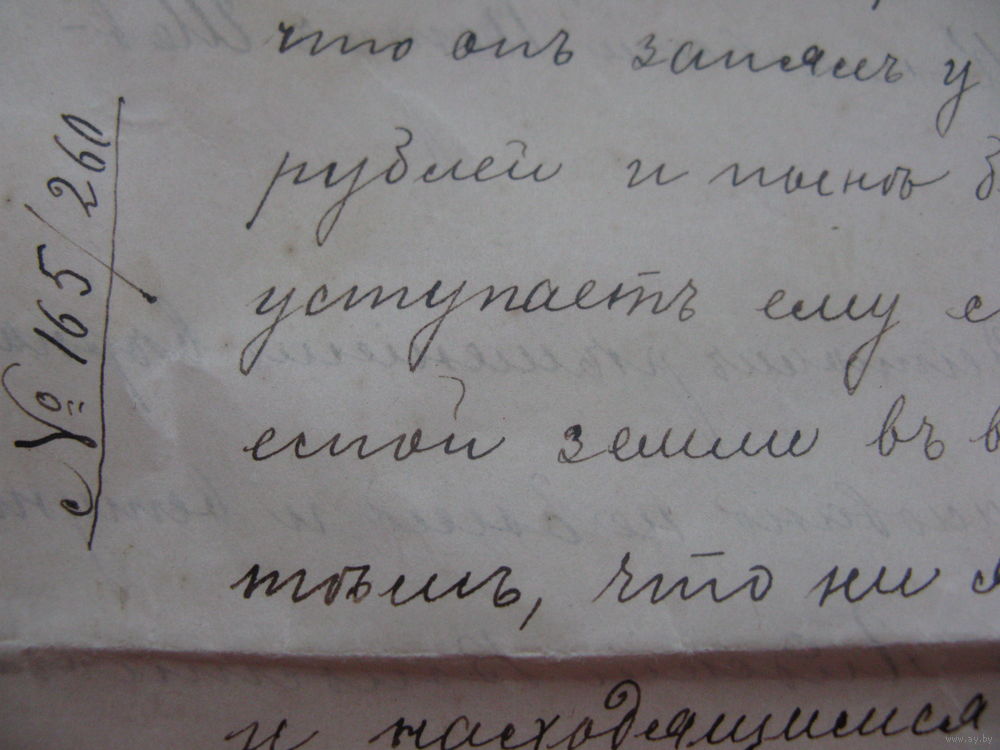 № 165/260
что онъ занялъ у
рублей и нынѣ
уступаетъ ему с
естой земли въ в
тѣмъ, что ни
и находящимися
www.ay.by